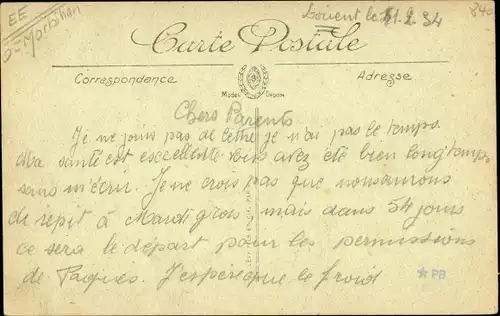 EE
Morbihan
Lorient le 11.2.34
840
Carte Postale
Correspondance
Adresse
Modèle Déposé
Chers Parents
Je ne jouis pas de lettre je n'ai pas le temps.
Ma santé est excellente vous avez été bien longtemps
sans m'écrire. Je ne crois pas que nous aurons
de répit à Mardi gras mais dans 54 jours
ce sera le départ pour les permissions
de Paques. J'espère que le froid
*PB